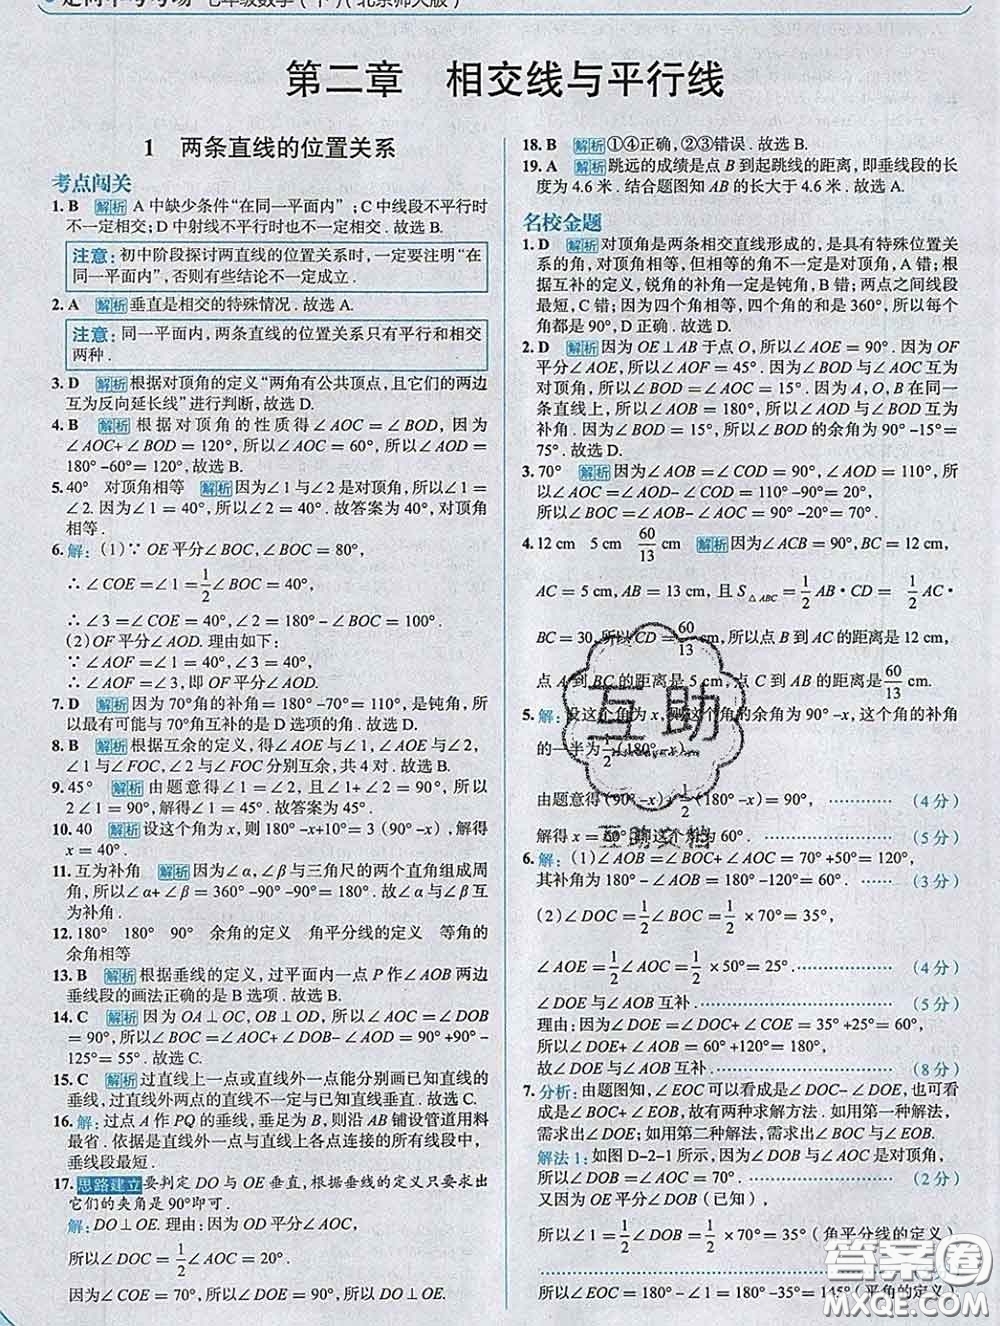 走向中考考场 七年级数学(下)(北京师大版)
第二章 相交线与平行线
1 两条直线的位置关系
考点闯关
1. B 解析 A 中缺少条件“在同一平面内”;C 中线段不平行时
不一定相交;D 中射线不平行时也不一定相交. 故选 B.
注意:初中阶段探讨两直线的位置关系时,一定要注明“在
同一平面内”,否则有些结论不一定成立.
2. A 解析 垂直是相交的特殊情况. 故选 A.
注意:同一平面内,两条直线的位置关系只有平行和相交
两种.
3. D 解析 根据对顶角的定义“两角有公共顶点,且它们的两边
互为反向延长线”进行判断,故选 D.
4. B 解析 根据对顶角的性质得∠AOC=∠BOD,因为
∠AOC+∠BOD=120°,所以∠AOC=60°,所以∠AOD=
180°-60°=120°. 故选 B.
5. 40° 对顶角相等 解析 因为∠1 与∠2 是对顶角,所以∠1=
∠2. 因为∠1=40°,所以∠2=40°. 故答案为 40°,对顶角
相等.
6. 解:(1)∵ OE 平分∠BOC,∠BOC=80°,
∴∠COE=∠1=1/2∠BOC=40°,
∴∠3=∠COE=40°,∠2=180°-∠BOC=100°.
(2)OF 平分∠AOD. 理由如下:
∵∠AOF=∠1=40°,∠3=40°,
∴∠AOF=∠3,即 OF 平分∠AOD.
7. D 解析 因为 70°角的补角=180°-70°=110°,是钝角,所
以最有可能与 70°角互补的是 D 选项的角. 故选 D.
8. B 解析 根据互余的定义,得∠AOE 与∠1,∠AOE 与∠2,
∠1 与∠FOC,∠2 与∠FOC 分别互余,共 4 对. 故选 B.
9. 45° 解析 由题意得∠1=∠2,且∠1+∠2=90°,所以
2∠1=90°,解得∠1=45°. 故答案为 45°.
10. 40 解析 设这个角为 x,则 180°-x+10°=3(90°-x),解得
x=40°.
11. 互为补角 解析 因为∠α、∠β与三角尺的两个直角组成周
角,所以∠α+∠β=360°-90°-90°=180°. 故∠α与∠β互
为补角.
12. 180° 180° 90° 余角的定义 角平分线的定义 等角的
余角相等
13. B 解析 根据垂线的定义,过平面内一点 P 作∠AOB 两边
垂线段的画法正确的是 B 选项. 故选 B.
14. C 解析 因为 OA⊥OC,OB⊥OD,所以∠AOC=∠DOB
=90°,所以∠BOC=∠AOC+∠DOB-∠AOD=90°+90°-
125°=55°. 故选 C.
15. C 解析 过直线上一点或直线外一点能分别画已知直线的
垂线,过直线外两点的直线不一定与已知直线垂直. 故选 C.
16. 解:过点 A 作 PQ 的垂线,垂足为 B,则沿 AB 铺设管道用料
最省. 依据是直线外一点与直线上各点连接的所有线段中,
垂线段最短.
17. 思路建立 要判定 DO 与 OE 垂直,根据垂线的定义只要求出
它们的夹角是 90°即可.
解:DO⊥OE. 理由:因为 OD 平分∠AOC,
所以∠DOC=1/2∠AOC=20°.
因为∠COE=70°,所以∠DOE=90°,所以 DO⊥OE.
18. B 解析 ①④正确,②③错误. 故选 B.
19. A 解析 跳远的成绩是点 B 到起跳线的距离,即垂线段的长
度为 4.6 米. 结合题图知 AB 的长大于 4.6 米. 故选 A.
名校金题
1. D 解析 对顶角是两条相交直线形成的,是具有特殊位置关
系的角,对顶角相等,但相等的角不一定是对顶角,A 错;根
据互补的定义,锐角的补角一定是钝角,B 错;两点之间线段
最短,C 错;因为四个角相等,四个角的和是 360°,所以每个
角都是 90°,D 正确. 故选 D.
2. D 解析 因为 OE⊥AB 于点 O,所以∠AOE=90°. 因为 OF
平分∠AOE,所以∠AOF=45°. 因为∠BOD 与∠AOC 为对
顶角,所以∠BOD=∠AOC=15°. 因为 A,O,B 在同一
条直线上,所以∠AOB=180°,所以∠AOD 与∠BOD 互为
补角. 因为∠BOD=15°,所以∠BOD 的余角为 90°-15°=
75°. 故选 D.
3. 70° 解析 因为∠AOB=∠COD=90°,∠AOD=110°,所
以∠AOC=∠AOD-∠COD=110°-90°=20°,
所以∠BOC=∠AOB-∠AOC=90°-20°=70°.
4. 12 cm 5 cm 60/13 cm 解析 因为∠ACB=90°,BC=12 cm,
AC=5 cm,AB=13 cm,且 S△ABC=1/2 AB·CD=1/2 AC·
BC=30,所以 CD=60/13 cm,所以点 B 到 AC 的距离是 12 cm,
点 A 到 BC 的距离是 5 cm,点 C 到 AB 的距离是 60/13 cm.
5. 解:设这个角为 x,则这个角的余角为 90°-x,这个角的补角
的一半为 1/2(180°-x).
由题意得(90°-x)+1/2(180°-x)=90°, (4 分)
解得 x=60°,即这个角为 60°. (5 分)
6. 解:(1)∠AOB=∠BOC+∠AOC=70°+50°=120°,
其补角为 180°-∠AOB=180°-120°=60°. (3 分)
(2)∠DOC=1/2∠BOC=1/2×70°=35°,
∠AOE=1/2∠AOC=1/2×50°=25°. (4 分)
∠DOE 与∠AOB 互补. (5 分)
理由:因为∠DOE=∠DOC+∠COE=35°+25°=60°,
所以∠DOE+∠AOB=60°+120°=180°,
故∠DOE 与∠AOB 互补. (8 分)
7. 分析:由题图知,∠EOC 可以看成是∠DOC-∠DOE,也可
看成是∠BOE+∠BOC,故有两种求解方法. 如用第一种解法,
需求出∠DOE;如用第二种解法,需求出∠BOE 和∠BOC.
解法 1:如图 D-2-1 所示,因为∠DOB 与∠AOC 是对顶角,
∠AOC=70°,所以∠DOB=70°. (2 分)
又因为 OE 平分∠DOB(已知),
所以∠1=1/2∠DOB=1/2×70°=35°(角平分线的定义)
所以∠EOC=180°-∠1=180°-35°=145°(平角的定义)
互助
互助文档
答案圈
MXQE.COM